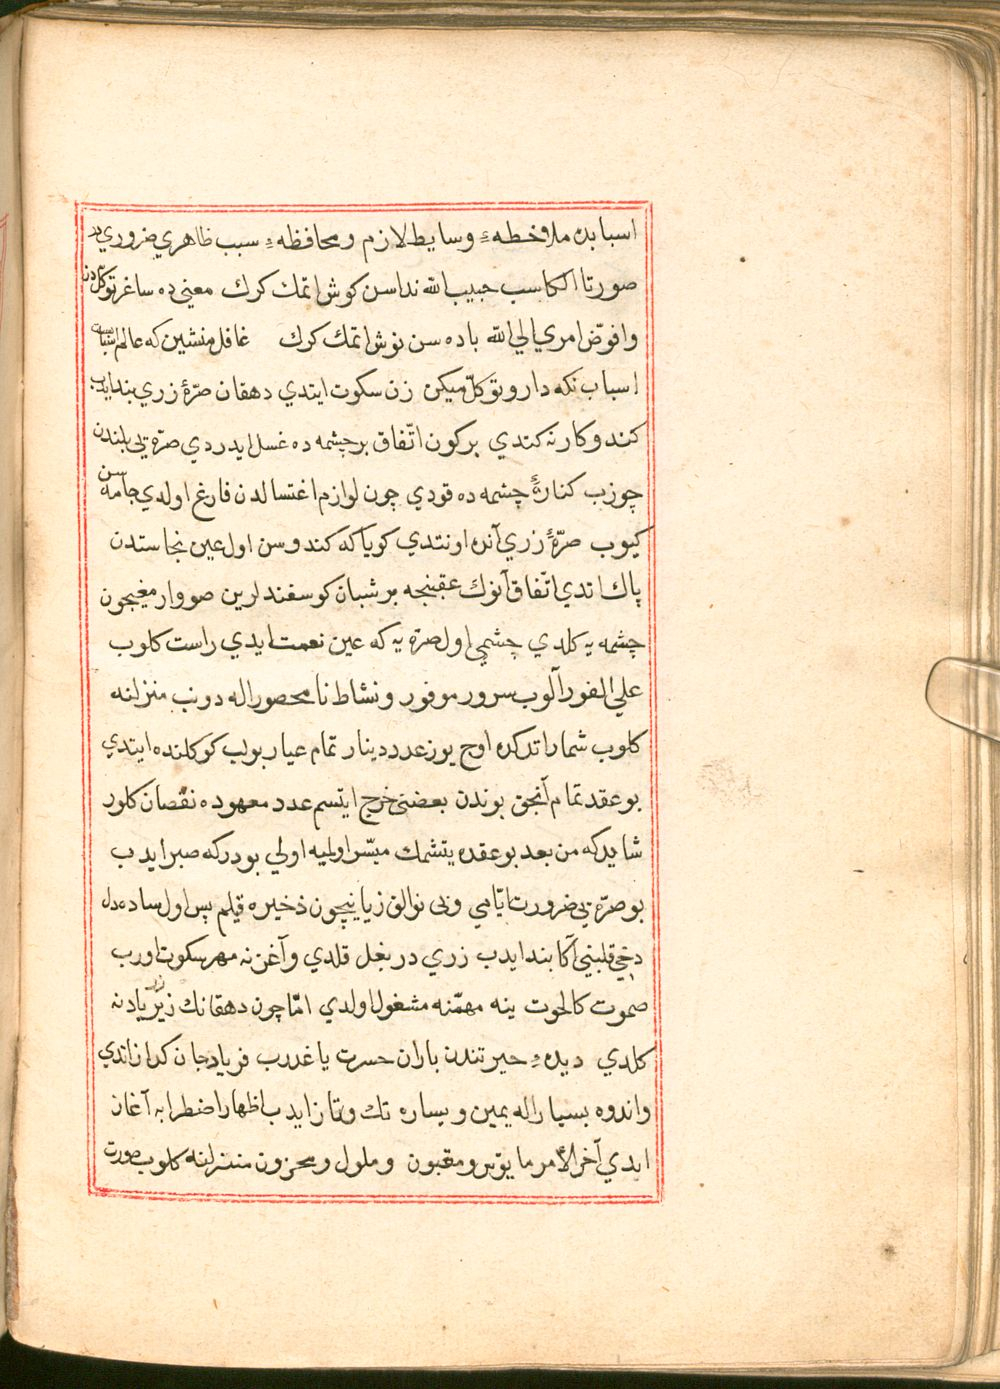 اسبابده ملاخطهٔ وسایط لازم ومحافظهٔ سبب ظاهري ضروري در
صورتا الکاسب حبیب الله نداسن کوش اتمك کرك معنی ده ساغر توکلدن
وافوّض امري الي الله باده سن نوش اتمك کرك غافل منشین که عالم اسبابست
اسباب نکه دار وتوکّل میکن زن سکوت ایتدي دهقان صرّۀ زري بند ایدب
کندو کارنه کتدي بر کون اتّفاق بر چشمه ده غسل ایدردي صرّه یی بلندن
چوزب کنارۀ چشمه ده قودي چون لوازم اغتسالدن فارغ اولدي جامه سن
کیوب صرّۀ زري آنده اونتدي کویا که کندوسن اول عین نجاستدن
پاك اتدي اتّفاق آنوك عقبنجه بر شبان کوسفندلرین صووارمغیچون
چشمه یه کلدي چشمي اول صرّه یه که عین نعمت ایدي راست کلوب
علي الفور آلوب سرور موفور ونشاط نامحصور اله دونب منزلنه
کلوب شمار اتدکده اوج یوز عدد دینار تمام عیار بولب کوکلنده ایتدي
بو عقد تمام آنجق بوندن بعضنی خرج ایتسم عدد معهوده نقصان کلور
شاید که من بعد بو عقده یتشمك میسّر اولمیه اولي بودر که صبر ایدب
بو صرّه یی ضرورت ایّامي ونی نوالق زیاینچون ذخیره قیلم پس اول ساده دل
دخی قلبنی آکا بند ایدب زري در بغل قلدي وآغزنه مهر سکوت اورب
صموت کالحوت ینه مهمّنه مشغول اولدي امّا چون دهقانك زر یادنه
کلدي دیدهٔ حیرتندن باران حسرت یاغدرب فریاد جان کداز اتدي
واندوه بسیار اله یمین ویساره تك وتاز ایدب اظهار اضطرابه آغاز
ایدي آخر الأمر مایوس ومقبون وملول ومحزون منزلنه کلوب صورت